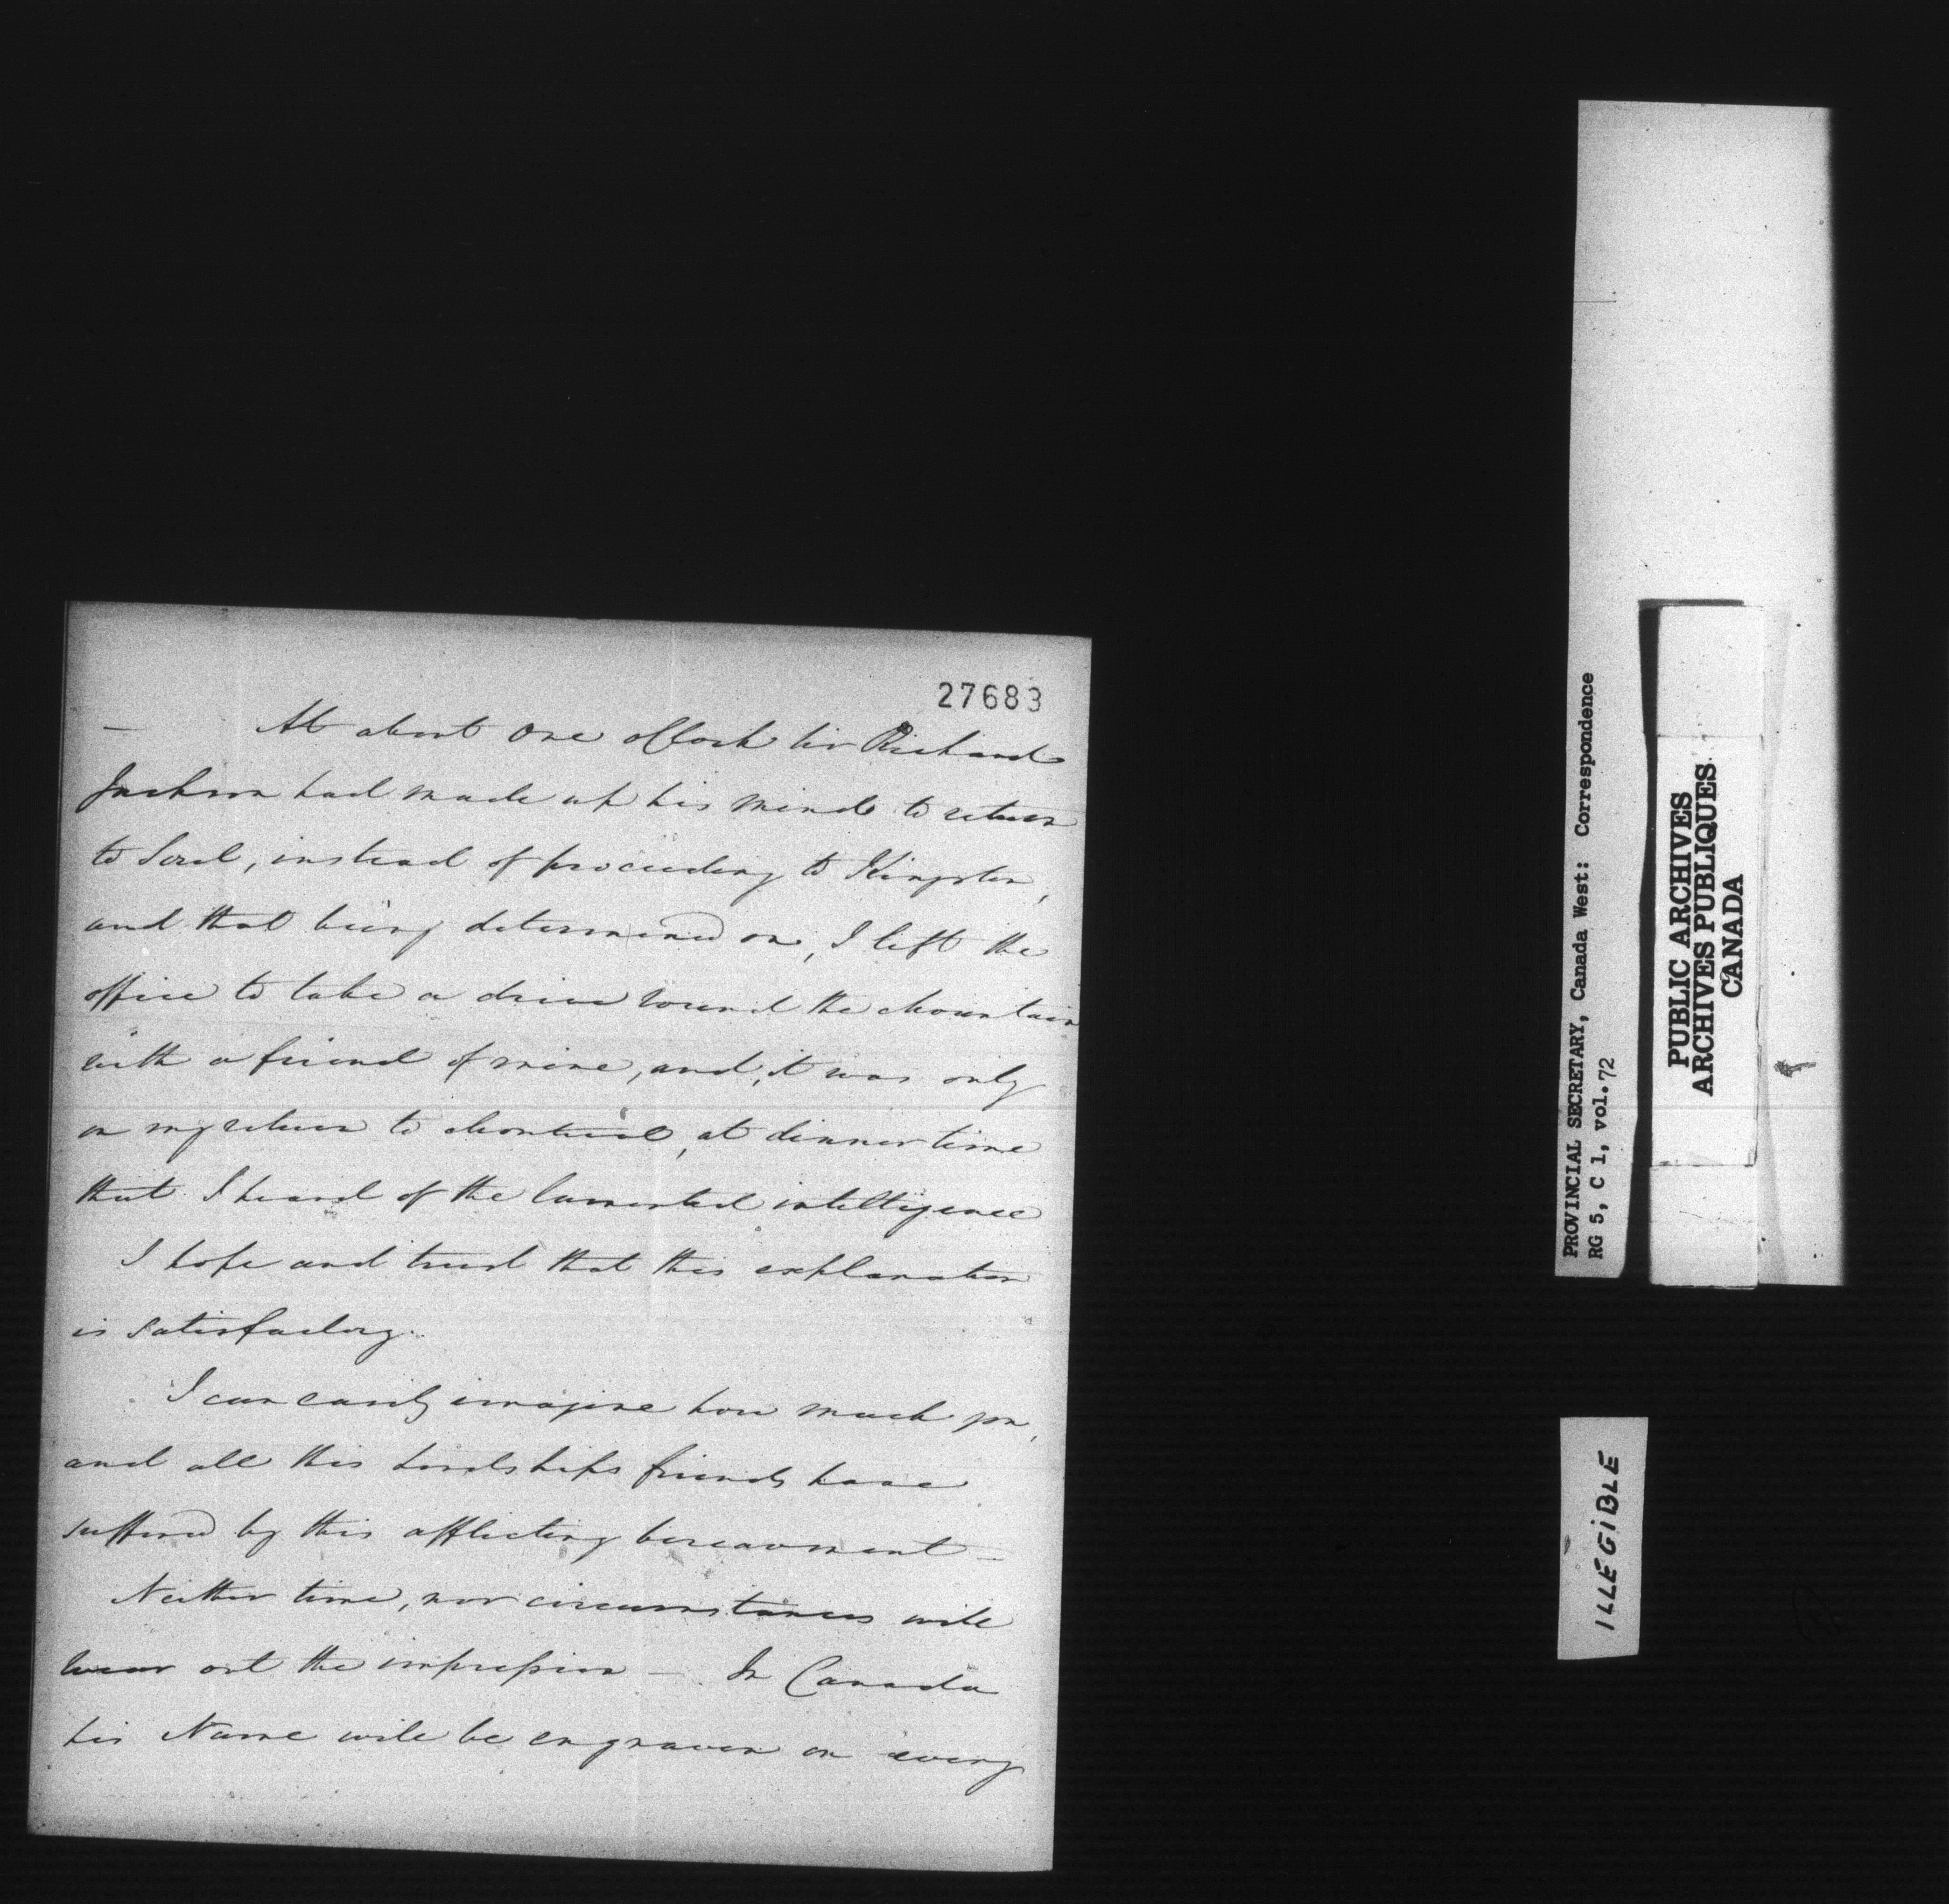 27683
— At about One oClock Sir Richard
Jackson had made up his mind to return
to Sorel, instead of proceeding to Kingston,
and that being determined on, I left the
office to take a drive round the Mountain
with a friend of mine, and, it was only
on my return to Montreal, at dinner time
that I heard of the lamented intelligence
I hope and trust that this explanation
is satisfactory.
I can easily imagine how much you,
and all his Lordships friends have
suffered by this afflicting bereavement —
Neither time, nor circumstances will
wear out the impression — In Canada
his Name will be engraven on every
PROVINCIAL SECRETARY, Canada West: Correspondence
RG 5, C 1, vol. 72
PUBLIC ARCHIVES
ARCHIVES PUBLIQUES
CANADA
ILLEGIBLE